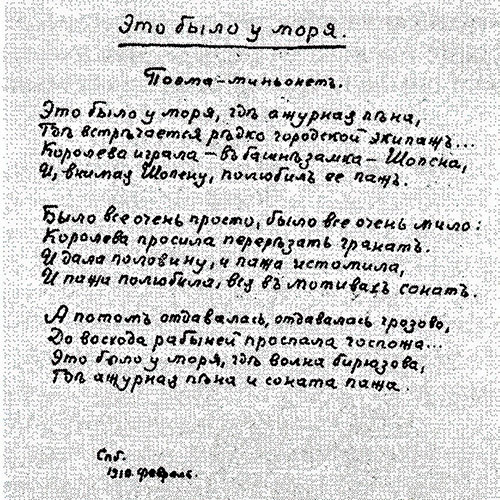 Это было у моря.
Поэма-миньонетъ.
Это было у моря, гдѣ ажурная пѣна,
Гдѣ встрѣчается рѣдко городской экипажъ...
Королева играла – въ башнѣ замка – Шопена,
И, внимая Шопену, полюбилъ ее пажъ.
Было все очень просто, было все очень мило:
Королева просила перерѣзать гранатъ.
И дала половину, и пажа истомила,
И пажа полюбила, вся въ мотивахъ сонатъ.
А потомъ отдавалась, отдавалась грозово,
До восхода рабыней проспала госпожа...
Это было у моря, гдѣ волна бирюзова,
Гдѣ ажурная пѣна и соната пажа.
Спб.
1910. февраль.